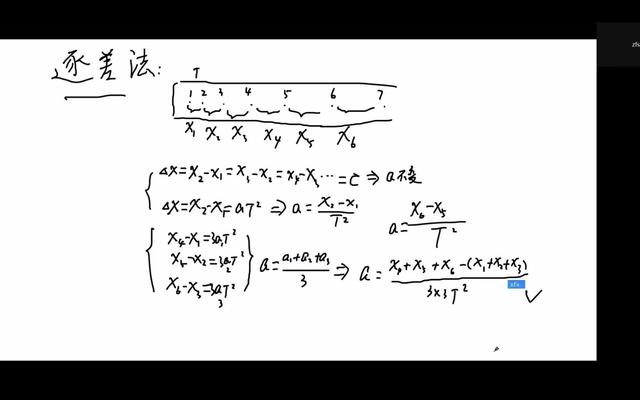 逐差法:
T
1 2 3 4 5 6 7
X₁ X₂ X₃ X₄ X₅ X₆
△X=X₂-X₁=X₃-X₂=X₄-X₃…=C⇒a不变
△X=X₂-X₁=aT²⇒a=(X₂-X₁)/T²
a=(X₆-X₅)/T²
X₄-X₁=3a₁T²
X₅-X₂=3a₂T²
X₆-X₃=3a₃T²
a=(a₁+a₂+a₃)/3⇒a=(X₄+X₅+X₆-(X₁+X₂+X₃))/(3×3T²)